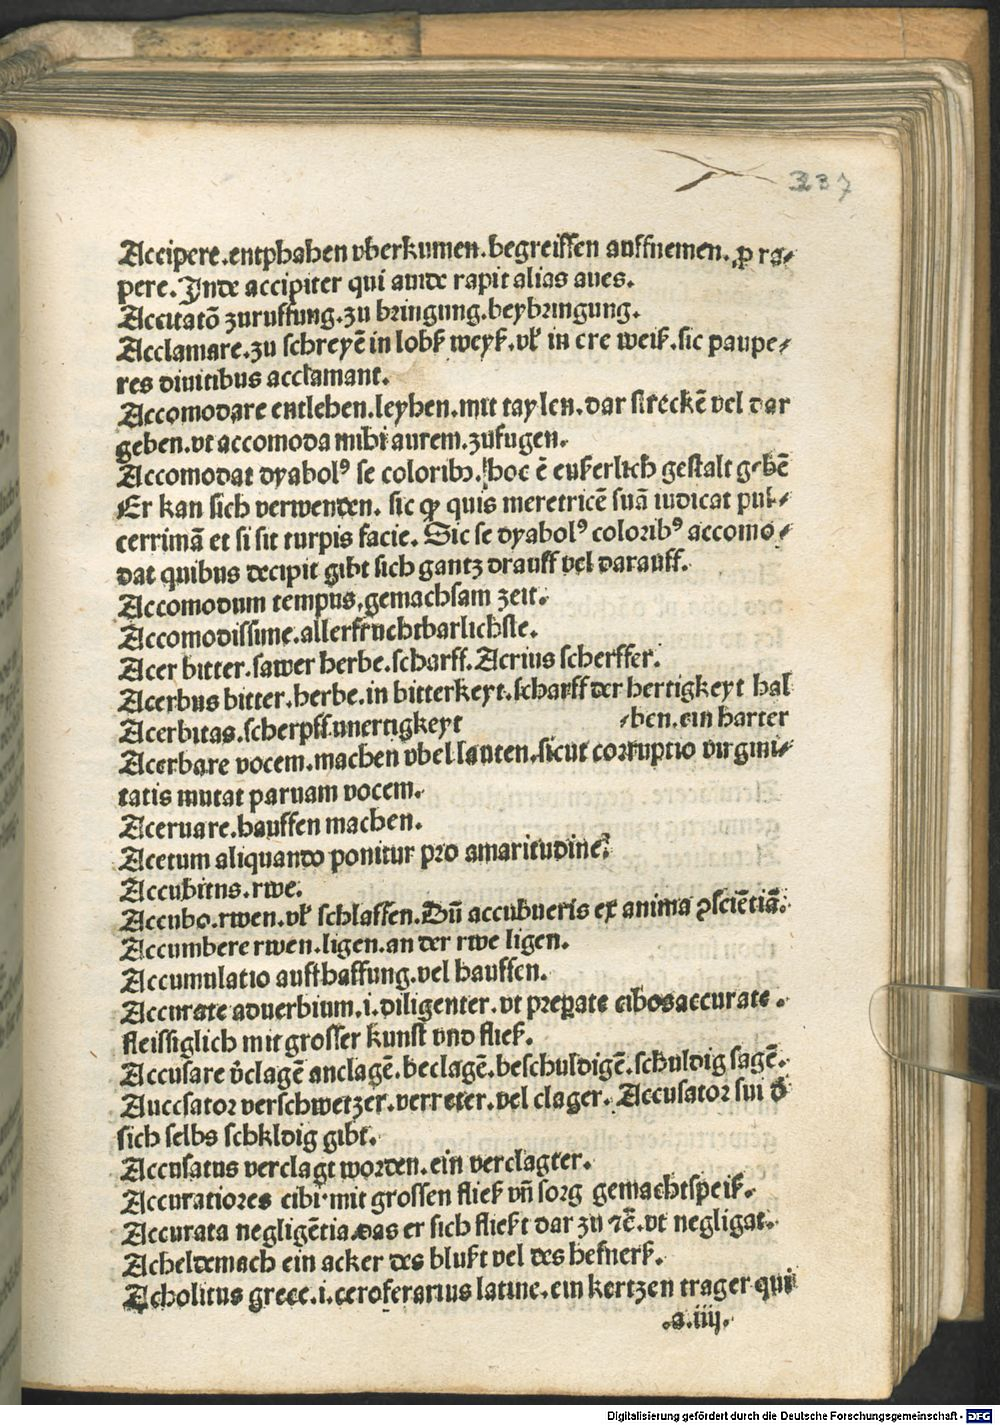 337
Accipere.entphahen vberkumen.begreiffen auffnemen.ꝓ ra⸗
pere.Inde accipiter qui amde rapit alias aues.
Accitatō zuruffung.zu bringung.beybringung.
Acclamare.zu schreyē in lobß weyß.vľ in ere weiß.sic paupe⸗
res diuitibus acclamant.
Accomodare entlehen.leyhen.mit taylen.dar streckē vel dar
geben.vt accomoda mihi aurem.zufugen.
Accomodat dyabolꝰ se coloribꝫ.hoc ē eußerlich gestalt gebē
Er kan sich verwenden. sic ꝙ quis meretricē suā iudicat pul⸗
cerrimā et si sit turpis facie. Sic se dyabolꝰ coloribꝰ accomo⸗
dat quibus decipit gibt sich gantz drauff vel darauff.
Accomodum tempus.gemachsam zeit.
Accomodissime.allerfruchtbarlichste.
Acer bitter.sawer herbe.scharff.Acrius scherffer.
Acerbus bitter.herbe.in bitterkeyt.scharff der hertigkeyt hal
Acerbitas.scherpff.vnertigkeyt ⸗ben.ein harter
Acerbare vocem.machen vbel lauten.sicut corruptio virgini⸗
tatis mutat paruam vocem.
Aceruare.hauffen machen.
Acetum aliquando ponitur pro amaritudine.
Accubitus.rwe.
Accubo.rwen.vľ schlaffen.Dū accubueris ex anima ꝯsciētiā.
Accumbere rwen.ligen.an der rwe ligen.
Accumulatio aufthaffung.vel hauffen.
Accurate aduerbium.i.diligenter.vt preꝑate cibos accurate.
fleissiglich mit grosser kunst vnd fließ.
Accusare v̄clagē anclagē.beclagē.beschuldigē.schuldig sagē.
Auccsator verschwetzer.verreter.vel clager. Accusator sui đ
sich selbs schkldig gibt.
Accusatus verclagt worden.ein verclagter.
Accuratiores cibi.mit grossen fließ vñ sorg gemacht speiß.
Accurata negligētia.das er sich fließt dar zu ⁊c̄.vt negligat.
Acheldemach ein acker des blußt vel des hefnerß.
Acholitus grece.i.ceroferarius latine.ein kertzen trager qui
.a.iiij.
Digitalisierung gefördert durch die Deutsche Forschungsgemeinschaft - DFG